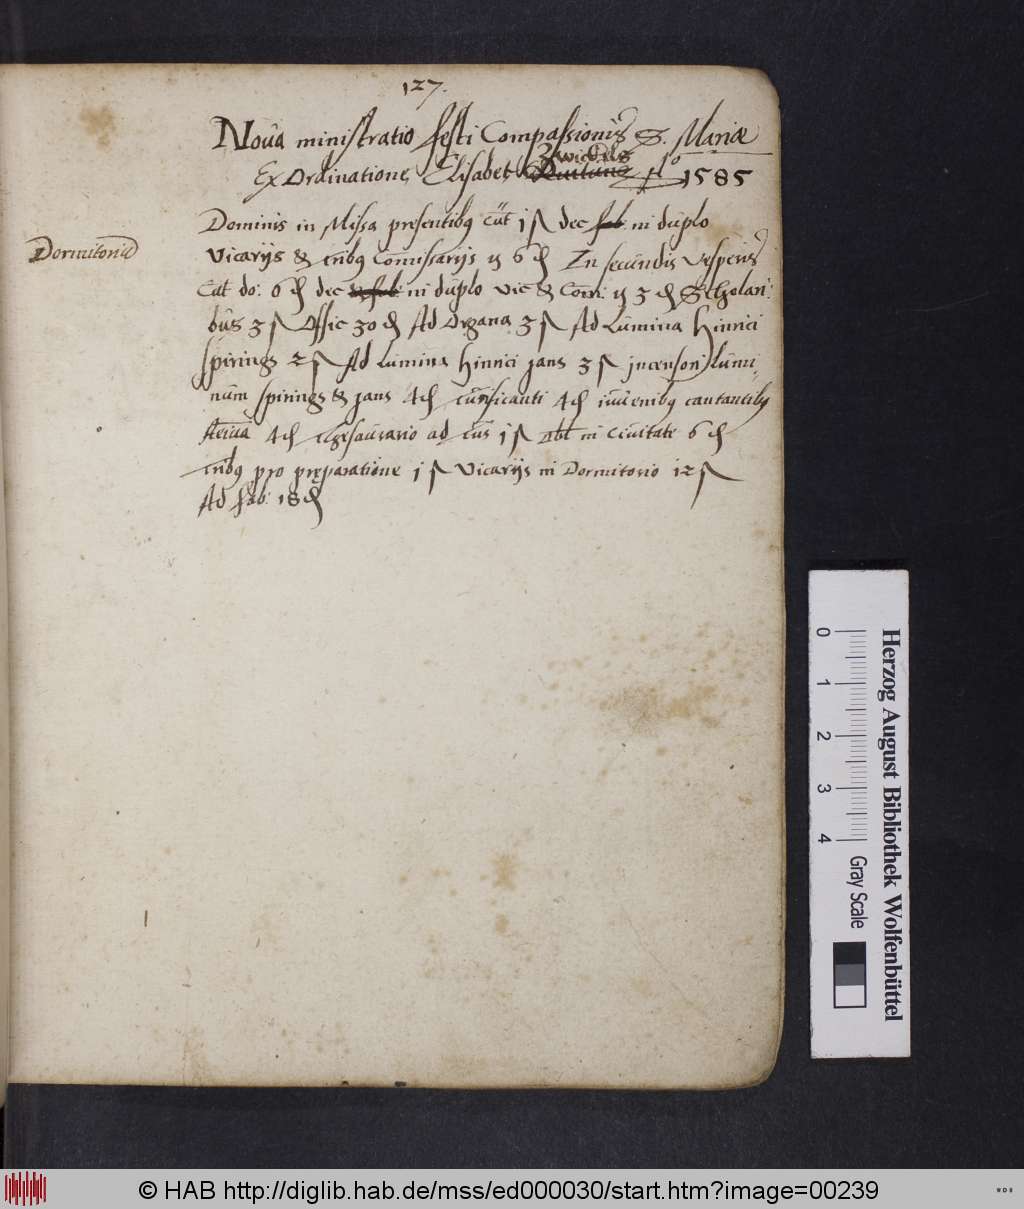 127.
Noua ministratio festi Compassionis S. Mariæ
Zwickels
Ex Ordinatione Elisabet 1585
Dormitoriũ
Dominis in Missa presentibꝯ cuĩ 1 ß dec in duplo
Vicarijs & Comissarijs ij 6 ₰ In secundis Vesperis
Cuĩ do: 6 ₰ dec in duplo vic & Com: ij 3 ₰ Scholari:
bus 3 ß Offic 30 ₰ Ad Organa 3 ß Ad Lumina Hinrici
Spirings 2 ß Ad Lumina Hinrici Jans 3 ß incensori Lumi
num Spirings & Jans 4 ₰ 4 ₰ iuuenibꝯ cantantibꝯ
4 ₰ thesaurario ad 1 ß in Ciuitate 6 ₰
pro præparatione 1 ß Vicarijs in Dormitorio 12 ß
Ad fab: 18 ₰
0 1 2 3 4
Gray Scale
Herzog August Bibliothek Wolfenbüttel
© HAB http://diglib.hab.de/mss/ed000030/start.htm?image=00239